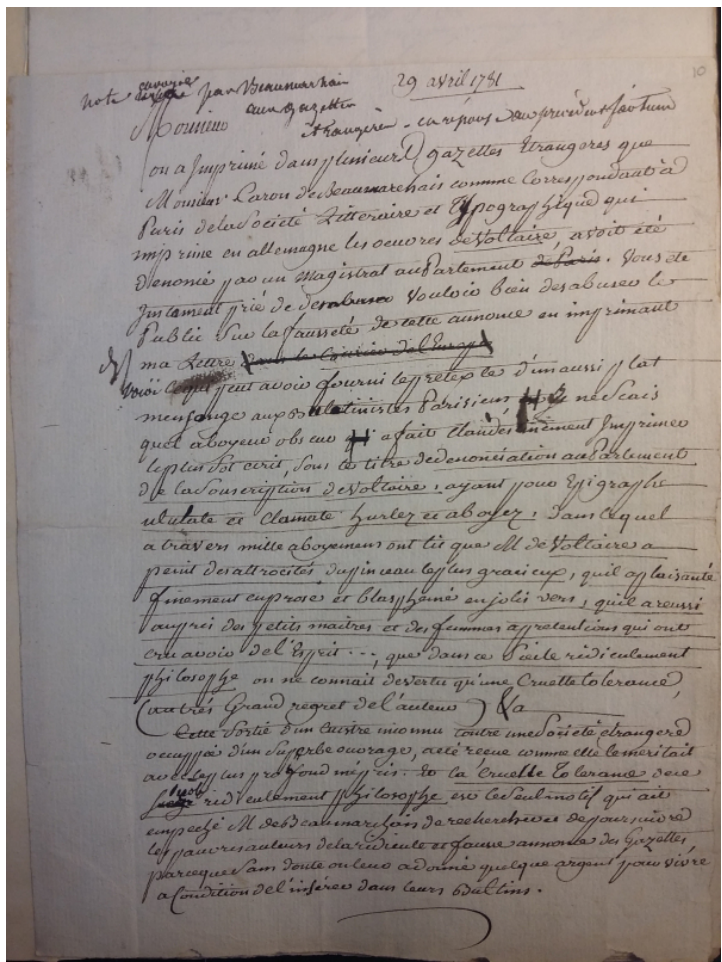 10
note envoyée par Beaumarchais 29 avril 1781
aux gazettes
Monsieur étrangères en réponse au précédent factum
on a Imprimé dans plusieurs gazettes Etrangeres que
Monsieur Caron de Beaumarchais comme Correspondant à
Paris de la Société Littéraire et Typographique qui
imprime en allemagne les oeuvres de Voltaire, avoit été
denoncé par un Magistrat au Parlement de Paris. Vous ete
Instament prié de desabuser Vouloir bien desabuser le
Public Sur la fausseté de cette annonce en imprimant
ma Lettre dans le Courier de l'Europe
Voiçi ce qui peut avoir fourni le prétexte d'un aussi plat
mensonge aux Bulatinistes Parisiens je ne Scais
quel aboyeur obscur a fait Clandestinement Imprimer
le plus Sot ecrit, Sous le titre de denonciation au Parlement
de la Souscription de Voltaire, ayant pour Epigraphe
ululate et Clamate hurlez et aboyez, dans lequel
a travers mille aboyemens ont lit que M de Voltaire a
peint des attrocités du pinceau le plus gracieux, quil a plaisanté
finement en prose et blasphemé en jolis vers, quil a reussi
aupres des petits maitres et des femmes a pretentions qui ont
cru avoir de l'Esprit ..., que dans ce Siecle ridiculement
philosophe on ne connait de vertu qu'une Cruelle tolerance,
(au très Grand regret de l'auteur) &a
Cette Sortie d'un Cuistre inconnu contre une Société étrangere
occuppée d'un Superbe ouvrage, a été reçue comme elle le meritait
avec le plus profond mépris. Et la Cruelle Tolerance de ce
Siecle ridiculement philosophe est le Seul motif qui ait
empeché M de Beaumarchais de rechercher et de poursuivre
les pauvres auteurs de la ridicule et fausse annonce des Gazettes
parceque Sans doute on leur a donné quelque argent pour vivre
a Condition de l'inserer dans leurs Bultins.